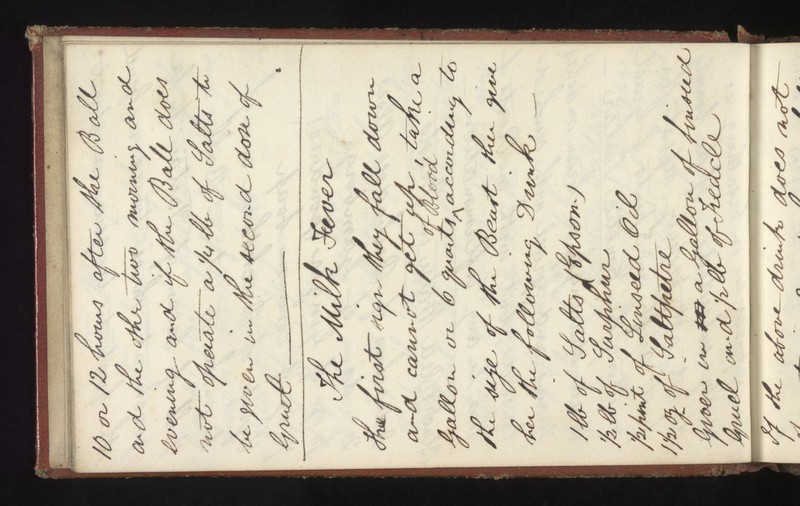 10 or 12 hours after the Ball
and the other two morning and
evening and if the Ball does
not operate a ¼ lb of Salts to
be given in the second dose of
Gruel
The Milk Fever
The first sign they fall down
and cannot get up, take a
Gallon or 6 quarts of blood according to
the size of the Beast then give
her the following Drink
1 lb of Salts (Epsom)
½ lb of Surphur
½ pint of Linseed Oil
1½ oz of Saltpetre
Given in a Gallon of Linseed
Gruel and ½ lb of Treacle
If the above drink does not